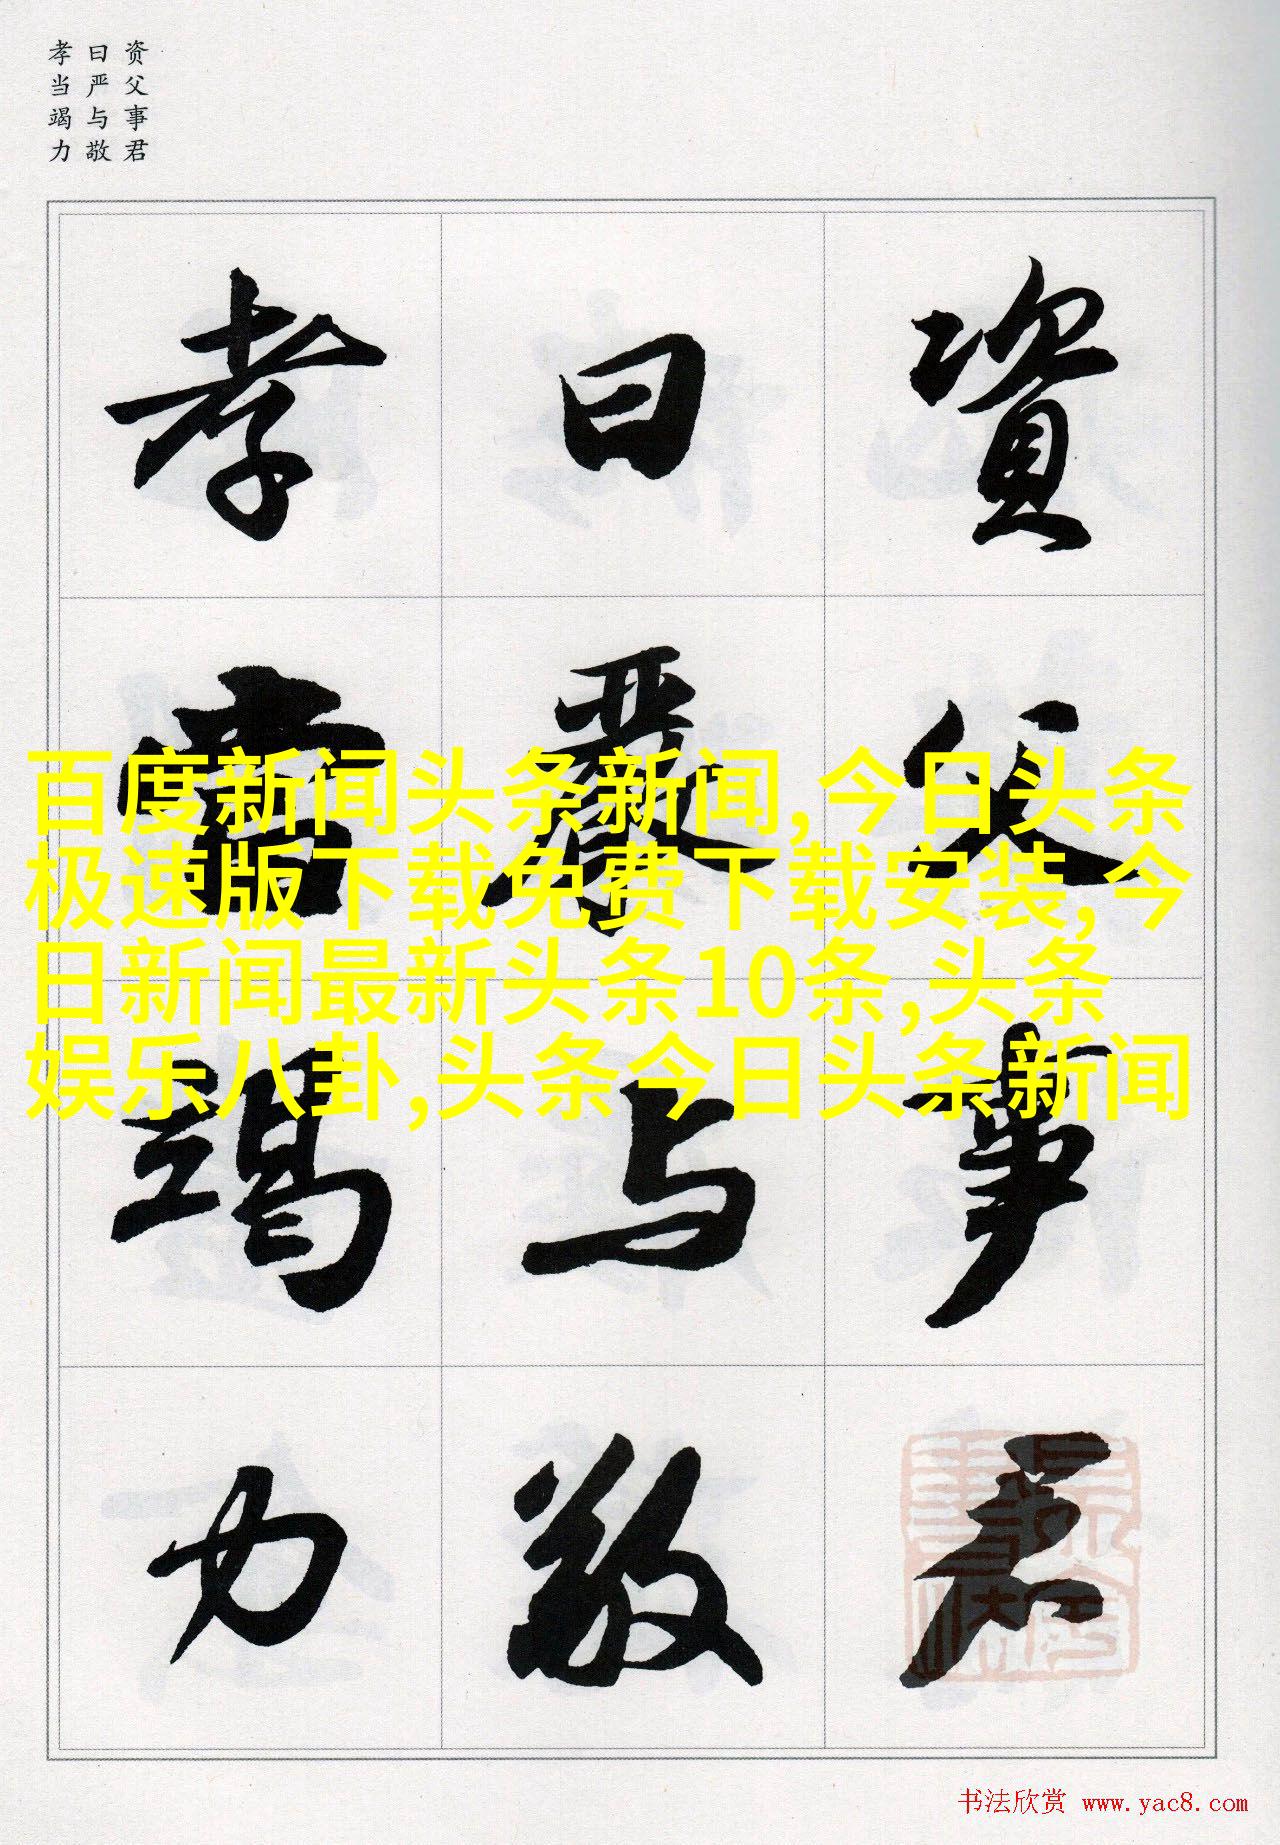 资父事君
曰严与敬
孝当竭力
資父事君
曰嚴与敬
孝當竭力
百度新闻头条新闻,今日头条
极速版下载免费下载安装,今
日新闻最新头条10条,头条
娱乐八卦,头条今日头条新闻
书法欣赏 www.yac8.com